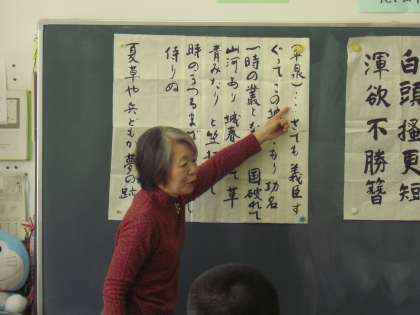 白頭掻更短
渾欲不勝簪
(平泉)…さても義臣す
ぐってこの城 もり功名
一時の叢とな 国破れて
山河あり 城春 て草
青みたりと笠
時のうつるまで
侍りぬ
夏草や兵どもが夢の跡